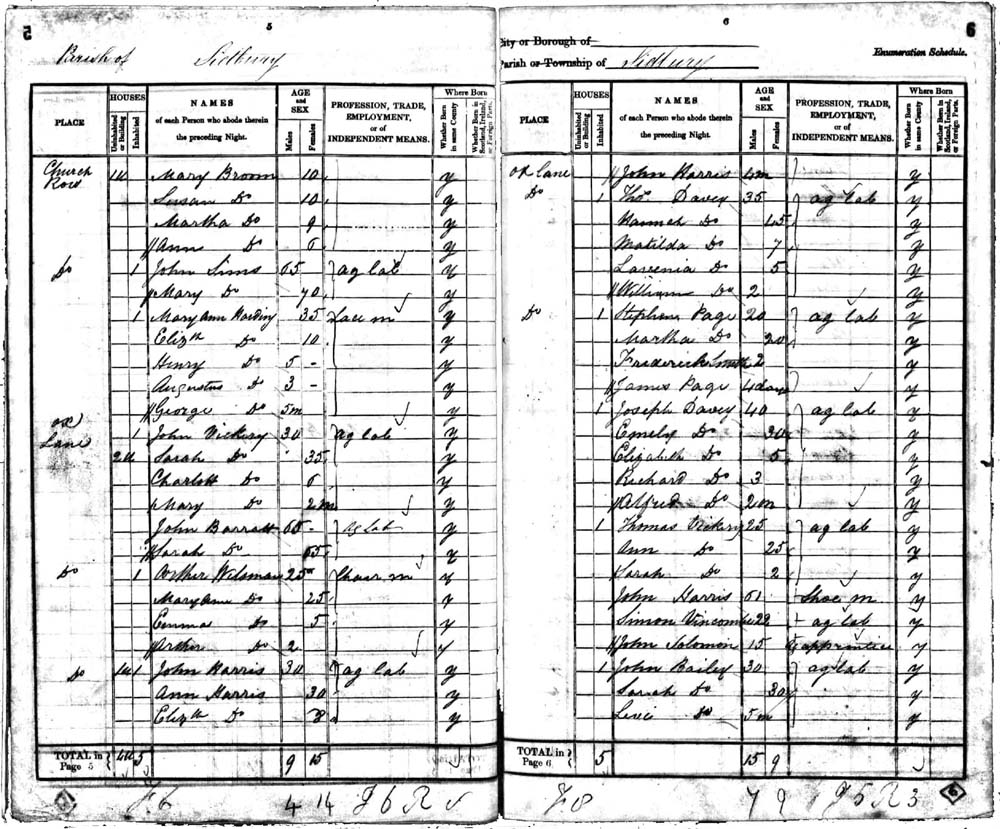 5
5
Parish of Sidbury
PLACE
HOUSES
Uninhabited or Building
Inhabited
NAMES of each Person who abode therein the preceding Night.
AGE and SEX
Males
Females
PROFESSION, TRADE, EMPLOYMENT, or of INDEPENDENT MEANS.
Where Born
Whether Born in same County
Whether Born in Scotland, Ireland, or Foreign Parts.
Church Row 1u Mary Broom 10 y
Susan Do 10 y
Martha Do 9 y
Ann Do 6 y
Do 1 John Sims 65 ag lab y
Mary Do 70 y
1 Mary Ann Harding 35 Lace m y
Elizth Do 10 y
Henry Do 5 - y
Augustus D 3 - y
George Do 5m y
Lane 1 John Vickery 30 ag lab y
2u Sarah Do 35 y
Charlott Do 6 y
Mary Do 2m y
John Barratt 65 - ag lab y
Sarah Do 65 y
Do 1 25 m y
Mary Ann Do 25 y
Emma Do 5 y
Do 2 y
Do 1u 1 John Harris 30 ag lab y
Ann Harris 30 y
Elizth Do 3 y
TOTAL in Page 5 4u 5 9 15
4 14
6
6
City or Borough of
Parish or Township of Sidbury
Enumeration Schedule.
PLACE
HOUSES
Uninhabited or Building
Inhabited
NAMES of each Person who abode therein the preceding Night.
AGE and SEX
Males
Females
PROFESSION, TRADE, EMPLOYMENT, or of INDEPENDENT MEANS.
Where Born
Whether Born in same County
Whether Born in Scotland, Ireland, or Foreign Parts.
lane John Harris 4m y
Do 1 Thos Davey 35 ag lab y
Hannah Do 45 y
Matilda Do 7 y
Lavenia Do 5 y
William Do 2 y
Do 1 Stephen Page 20 ag lab y
Martha Do 20 y
Frederick Smith 2 y
James Page 4 days y
1 Joseph Davey 40 ag lab y
Emely Do 30 y
Elizabeth Do 5 y
Richard Do 3 y
Alfred Do 2m y
1 Thomas Vickery 25 ag lab y
Ann Do 25 y
Sarah Do 2 y
John Harris Shoe m y
Simon Vincombe 22 ag lab y
John Solomon 15 apprentice y
1 John Bailey 30 ag lab y
Sarah Do 30 y
Levi Do 5m y
TOTAL in Page 6 5 15 9
7 9
6